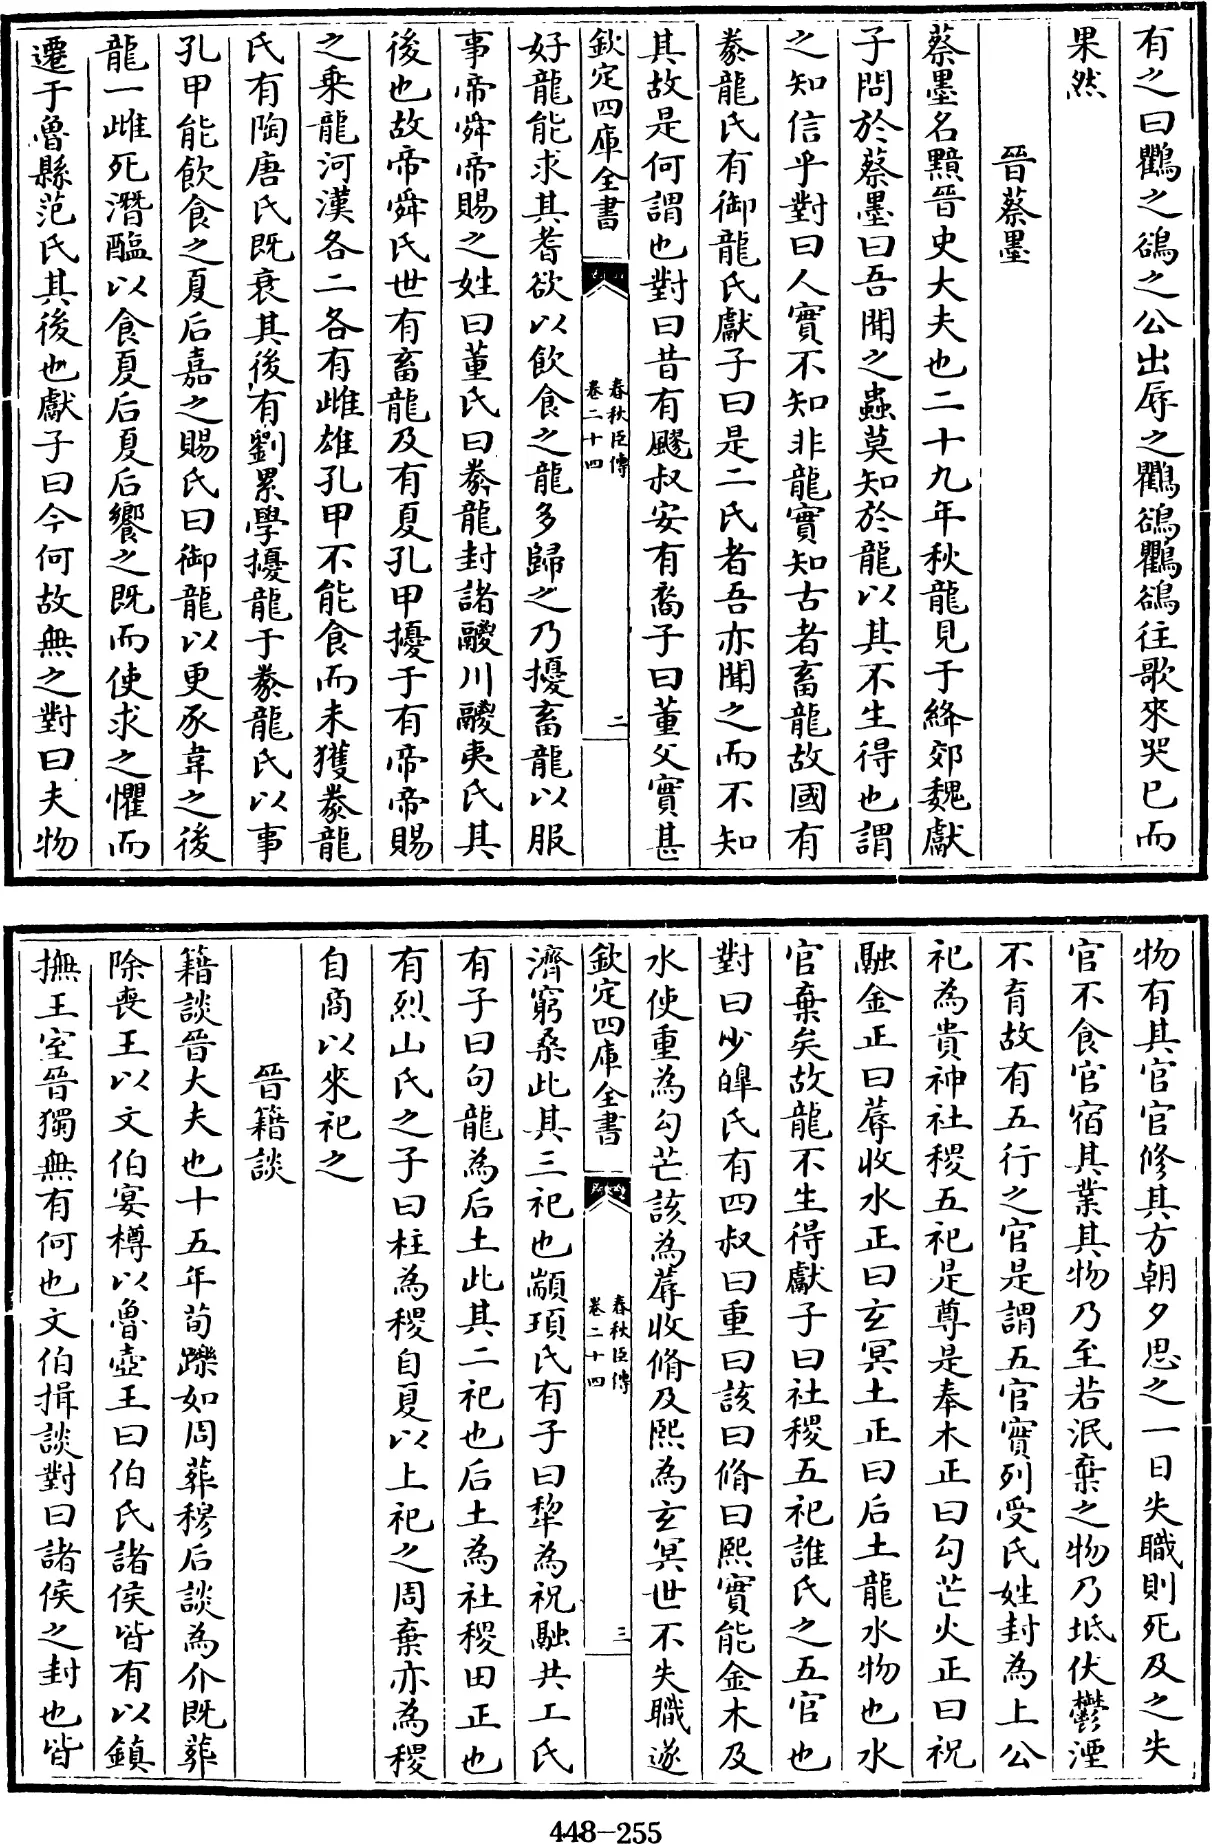 有之曰鸜之鵒之公出辱之鸜鵒鸜鵒往歌來哭已而
果然
晉蔡墨
蔡墨名黯晉史大夫也二十九年秋龍見于絳郊魏獻
子問於蔡墨曰吾聞之蟲莫知於龍以其不生得也謂
之知信乎對曰人實不知非龍實知古者畜龍故國有
豢龍氏有御龍氏獻子曰是二氏者吾亦聞之而不知
其故是何謂也對曰昔有飂叔安有裔子曰董父實甚
欽定四庫全書
春秋臣傳
卷二十四
二
好龍能求其耆欲以飲食之龍多歸之乃擾畜龍以服
事帝舜帝賜之姓曰董氏曰豢龍封諸鬷川鬷夷氏其
後也故帝舜氏世有畜龍及有夏孔甲擾于有帝帝賜
之乘龍河漢各二各有雌雄孔甲不能食而未獲豢龍
氏有陶唐氏既衰其後有劉累學擾龍于豢龍氏以事
孔甲能飲食之夏后嘉之賜氏曰御龍以更豕韋之後
龍一雌死潛醢以食夏后夏后饗之既而使求之懼而
遷于魯縣范氏其後也獻子曰今何故無之對曰夫物
物有其官官修其方朝夕思之一日失職則死及之失
官不食官宿其業其物乃至若泯棄之物乃坻伏鬱湮
不育故有五行之官是謂五官實列受氏姓封為上公
祀為貴神社稷五祀是尊是奉木正曰勾芒火正曰祝
融金正曰蓐收水正曰玄冥土正曰后土龍水物也水
官棄矣故龍不生得獻子曰社稷五祀誰氏之五官也
對曰少皞氏有四叔曰重曰該曰脩曰熙實能金木及
水使重為勾芒該為蓐收脩及熙為玄冥世不失職遂
欽定四庫全書
春秋臣傳
卷二十四
三
濟窮桑此其三祀也顓頊氏有子曰犂為祝融共工氏
有子曰句龍為后土此其二祀也后土為社稷田正也
有烈山氏之子曰柱為稷自夏以上祀之周棄亦為稷
自商以來祀之
晉籍談
籍談晉大夫也十五年荀躒如周葬穆后談為介既葬
除喪王以文伯宴樽以魯壺王曰伯氏諸侯皆有以鎮
撫王室晉獨無有何也文伯揖談對曰諸侯之封也皆
448-255